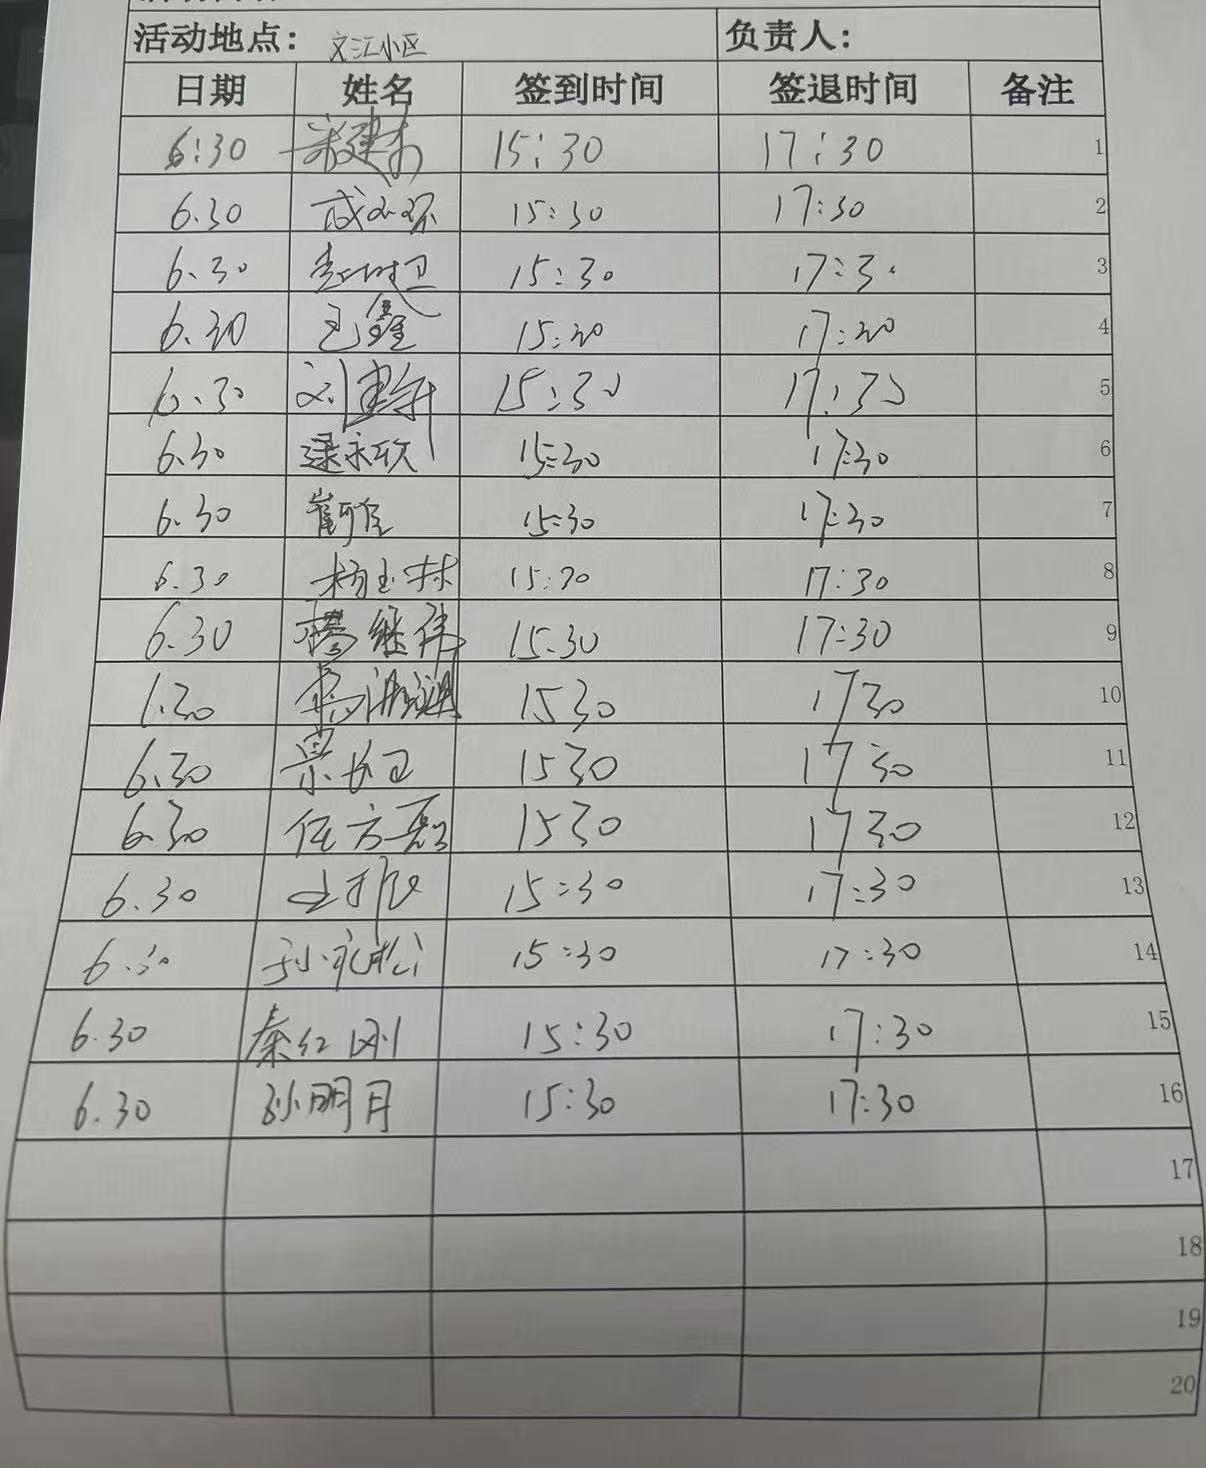 活动地点: 文江小区 负责人:
日期 姓名 签到时间 签退时间 备注
6:30 15:30 17:30 1
6.30 15:30 17:30 2
6.30 15:30 17:30 3
6.30 鑫 15:30 17:30 4
6.30 刘建 15:30 17:30 5
6.30 梁永欣 15:30 17:30 6
6.30 崔 15:30 17:30 7
6.30 杨玉林 15:30 17:30 8
6.30 杨继伟 15:30 17:30 9
6.30 1530 1730 10
6.30 景 卫 1530 1730 11
6.30 任方 1530 1730 12
6.30 15:30 17:30 13
6.30 孙礼松 15:30 17:30 14
6.30 秦红刚 15:30 17:30 15
6.30 孙明月 15:30 17:30 16
17
18
19
20